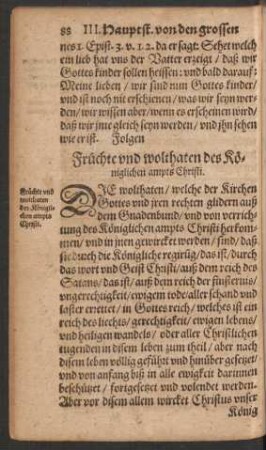 88 III. Hauptst. von den grossen
nes 1. Epist. 3. v. 1. 2. da er sagt: Sehet welch
ein lieb hat vns der Vatter erzeigt / daß wir
Gottes kinder sollen heissen: vnd bald darauf:
Meine lieben / wir sind nun Gottes kinder /
vnd ist noch nit erschienen / was wir seyn wer-
den / wir wissen aber / wenn es erscheinen wird /
daß wir jme gleich seyn werden / vnd jhn sehen
wie er ist. Folgen
Früchte vnd wolthaten des Kö-
niglichen ampts Christi.
Früchte vnd
wolthaten
des Königli-
chen ampts
Christi.
DIE wolthaten / welche der Kirchen
Gottes vnd jren rechten glidern auß
dem Gnadenbund / vnd von verrich-
tung des Königlichen ampts Christi herkom-
men / vnd in jnen gewircket werden / sind / daß
sie durch die Königliche regirūg / das ist / durch
das wort vnd Geist Christi / auß dem reich des
Satans / das ist / auß dem reich der finsternis /
vngerechtigkeit / ewigem tode / aller schand vnd
laster erreuet / in Gottes reich / welches ist ein
reich des liechts / gerechtigkeit / ewigen lebens /
vnd heiligen wandels / oder aller Christlichen
tugenden in disem leben zum theil / aber nach
disem leben völlig geführt vnd hinüber gesetzet /
vnd von anfang biß in alle ewigkeit darinnen
beschützet / fortgesetzet vnd volendet werden.
Aber vor disem allem wircket Christus vnser
König